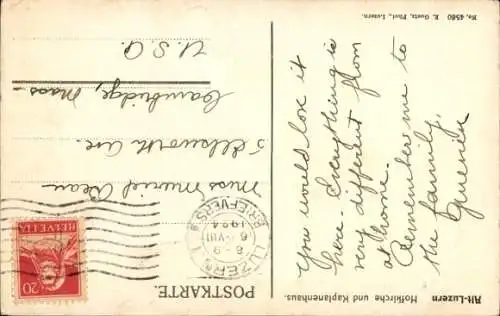 Alt-Luzern Hofkirche und Kaplanenhaus.
You would love it
here. Everything is
very different from
at home.
Remember me to
the family.
No. 4560 E. Goetz, Phot., Luzern.
POSTKARTE.
20
HELVETIA
LUZERN 1
6.VIII
1924
BRIEFVERS.
Miss Muriel Dean
5 Ellsworth Ave.
Cambridge, Mass
U.S.A.